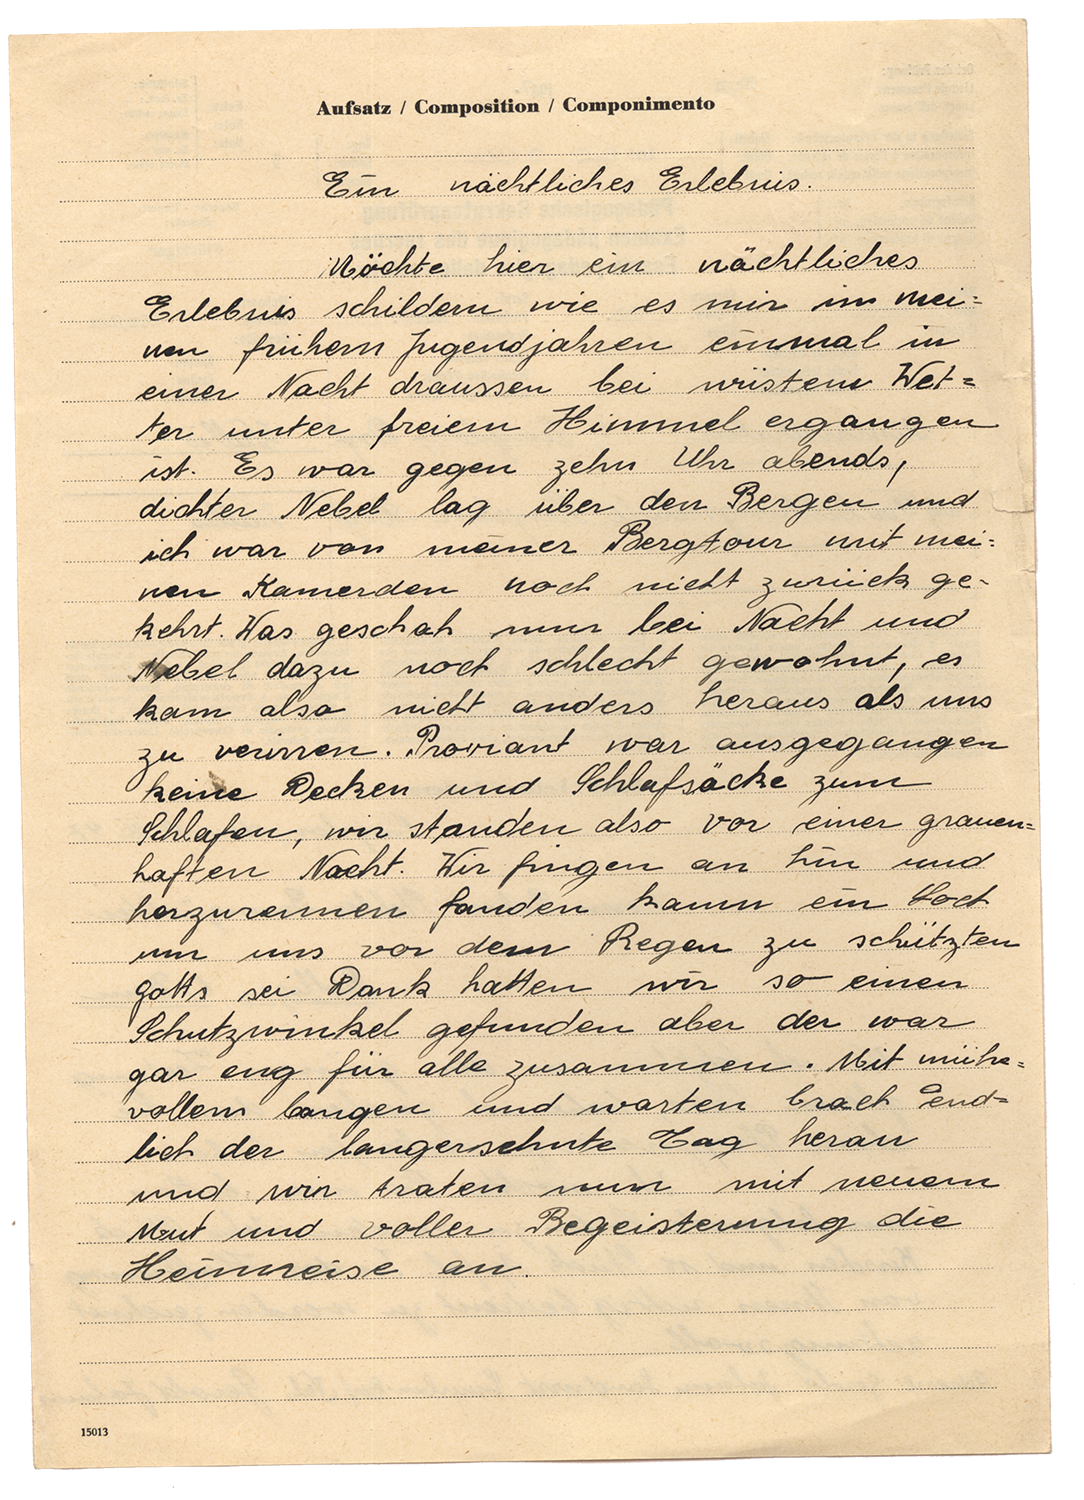 Aufsatz / Composition / Componimento
Ein nächtliches Erlebnis.
Möchte hier ein nächtliches
Erlebnis schildern wie es mir in mei=
nen frühern Jugendjahren einmal in
einer Nacht draussen bei wüstem Wet=
ter unter freiem Himmel ergangen
ist. Es war gegen zehn Uhr abends,
dichter Nebel lag über den Bergen und
ich war von meiner Bergtour mit mei=
nen Kamerden noch nicht zurück ge-
kehrt. Was geschah nun bei Nacht und
Nebel dazu noch schlecht gewohnt, es
kam also nicht anders heraus als uns
zu verirren. Proviant war ausgegangen
keine Decken und Schlafsäcke zum
Schlafen, wir standen also vor einer grauen=
haften Nacht. Wir fingen an hin und
herzurennen fanden kaum ein Loch
um uns vor dem Regen zu schützten
gotts sei Dank hatten wir so einen
Schutzwinkel gefunden aber der war
gar eng für alle zusammen. Mit mühe=
vollem bangen und warten brach end=
lich der langersehnte Tag heran
und wir traten nun mit neuem
Mut und voller Begeisterung die
Heimreise an.
15013